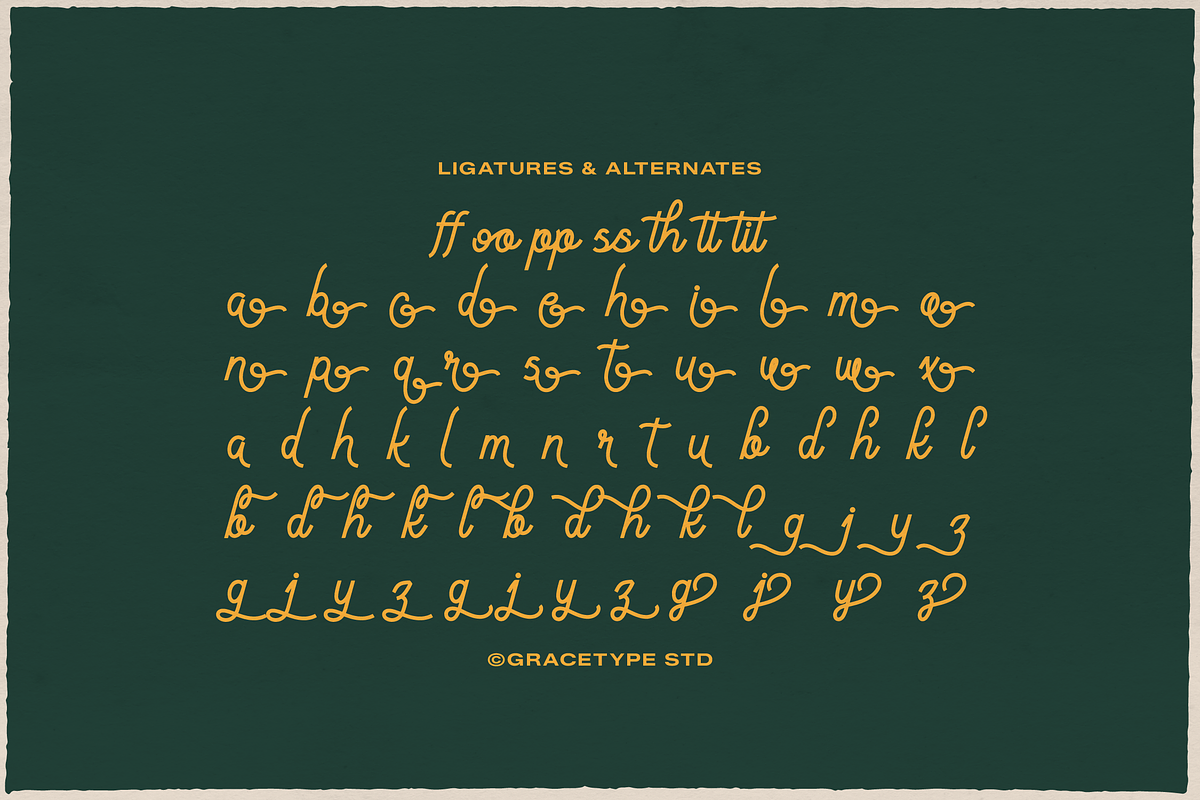 LIGATURES & ALTERNATES
ff oo pp ss th tt tit
a b c d e h i l m o
n p q r s t u v w x
a d h k l m n r t u b d h k l
b d h k l b d h k l g j y z
g j y z g j y z g j y z
©GRACETYPE STD